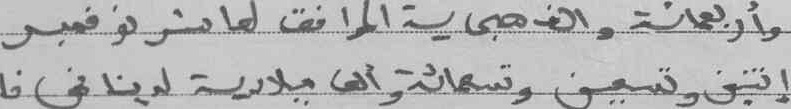 وأربعمائة وألف هجرية الموافق لعاشر نوفمبر
إثنين وتسعين وتسعمائة وألف ميلادية لدينا نحن